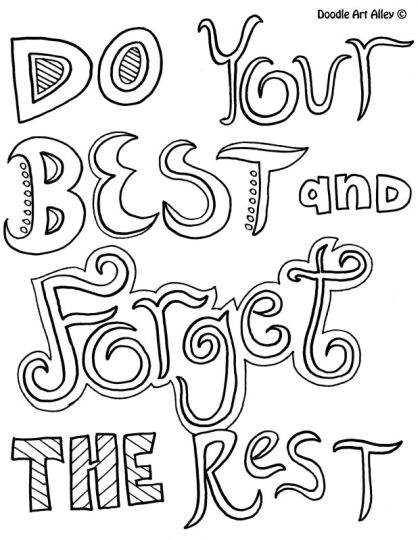 Doodle Art Alley ©
DO YOUR
BEST and
Forget
THE ReST